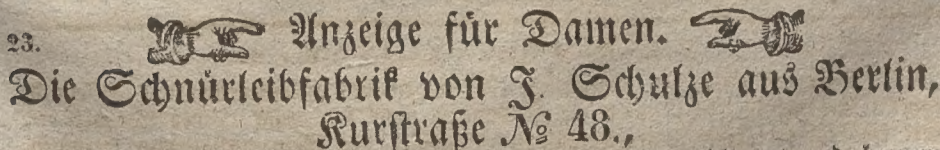 23. Anzeige für Damen.
Die Schnürleibfabrik von J. Schulze aus Berlin,
Kurſtraße № 48.,